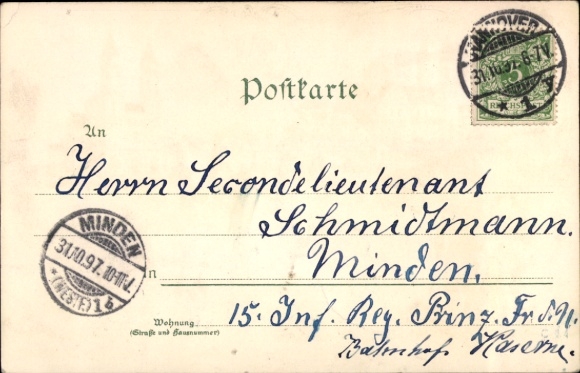 HANNOVER
31.10.97. 6-7V.
* 1 y
5
REICHSPOST
Postkarte
An
Herrn Secondelieutenant
Schmidtmann.
MINDEN
31.10.97. 10-11V.
* (WESTF.) 1 b
in Minden.
Wohnung
(Straße und Hausnummer)
15. Inf. Reg. Prinz. Fr. d. N.
Bahnhofs Kaserne.